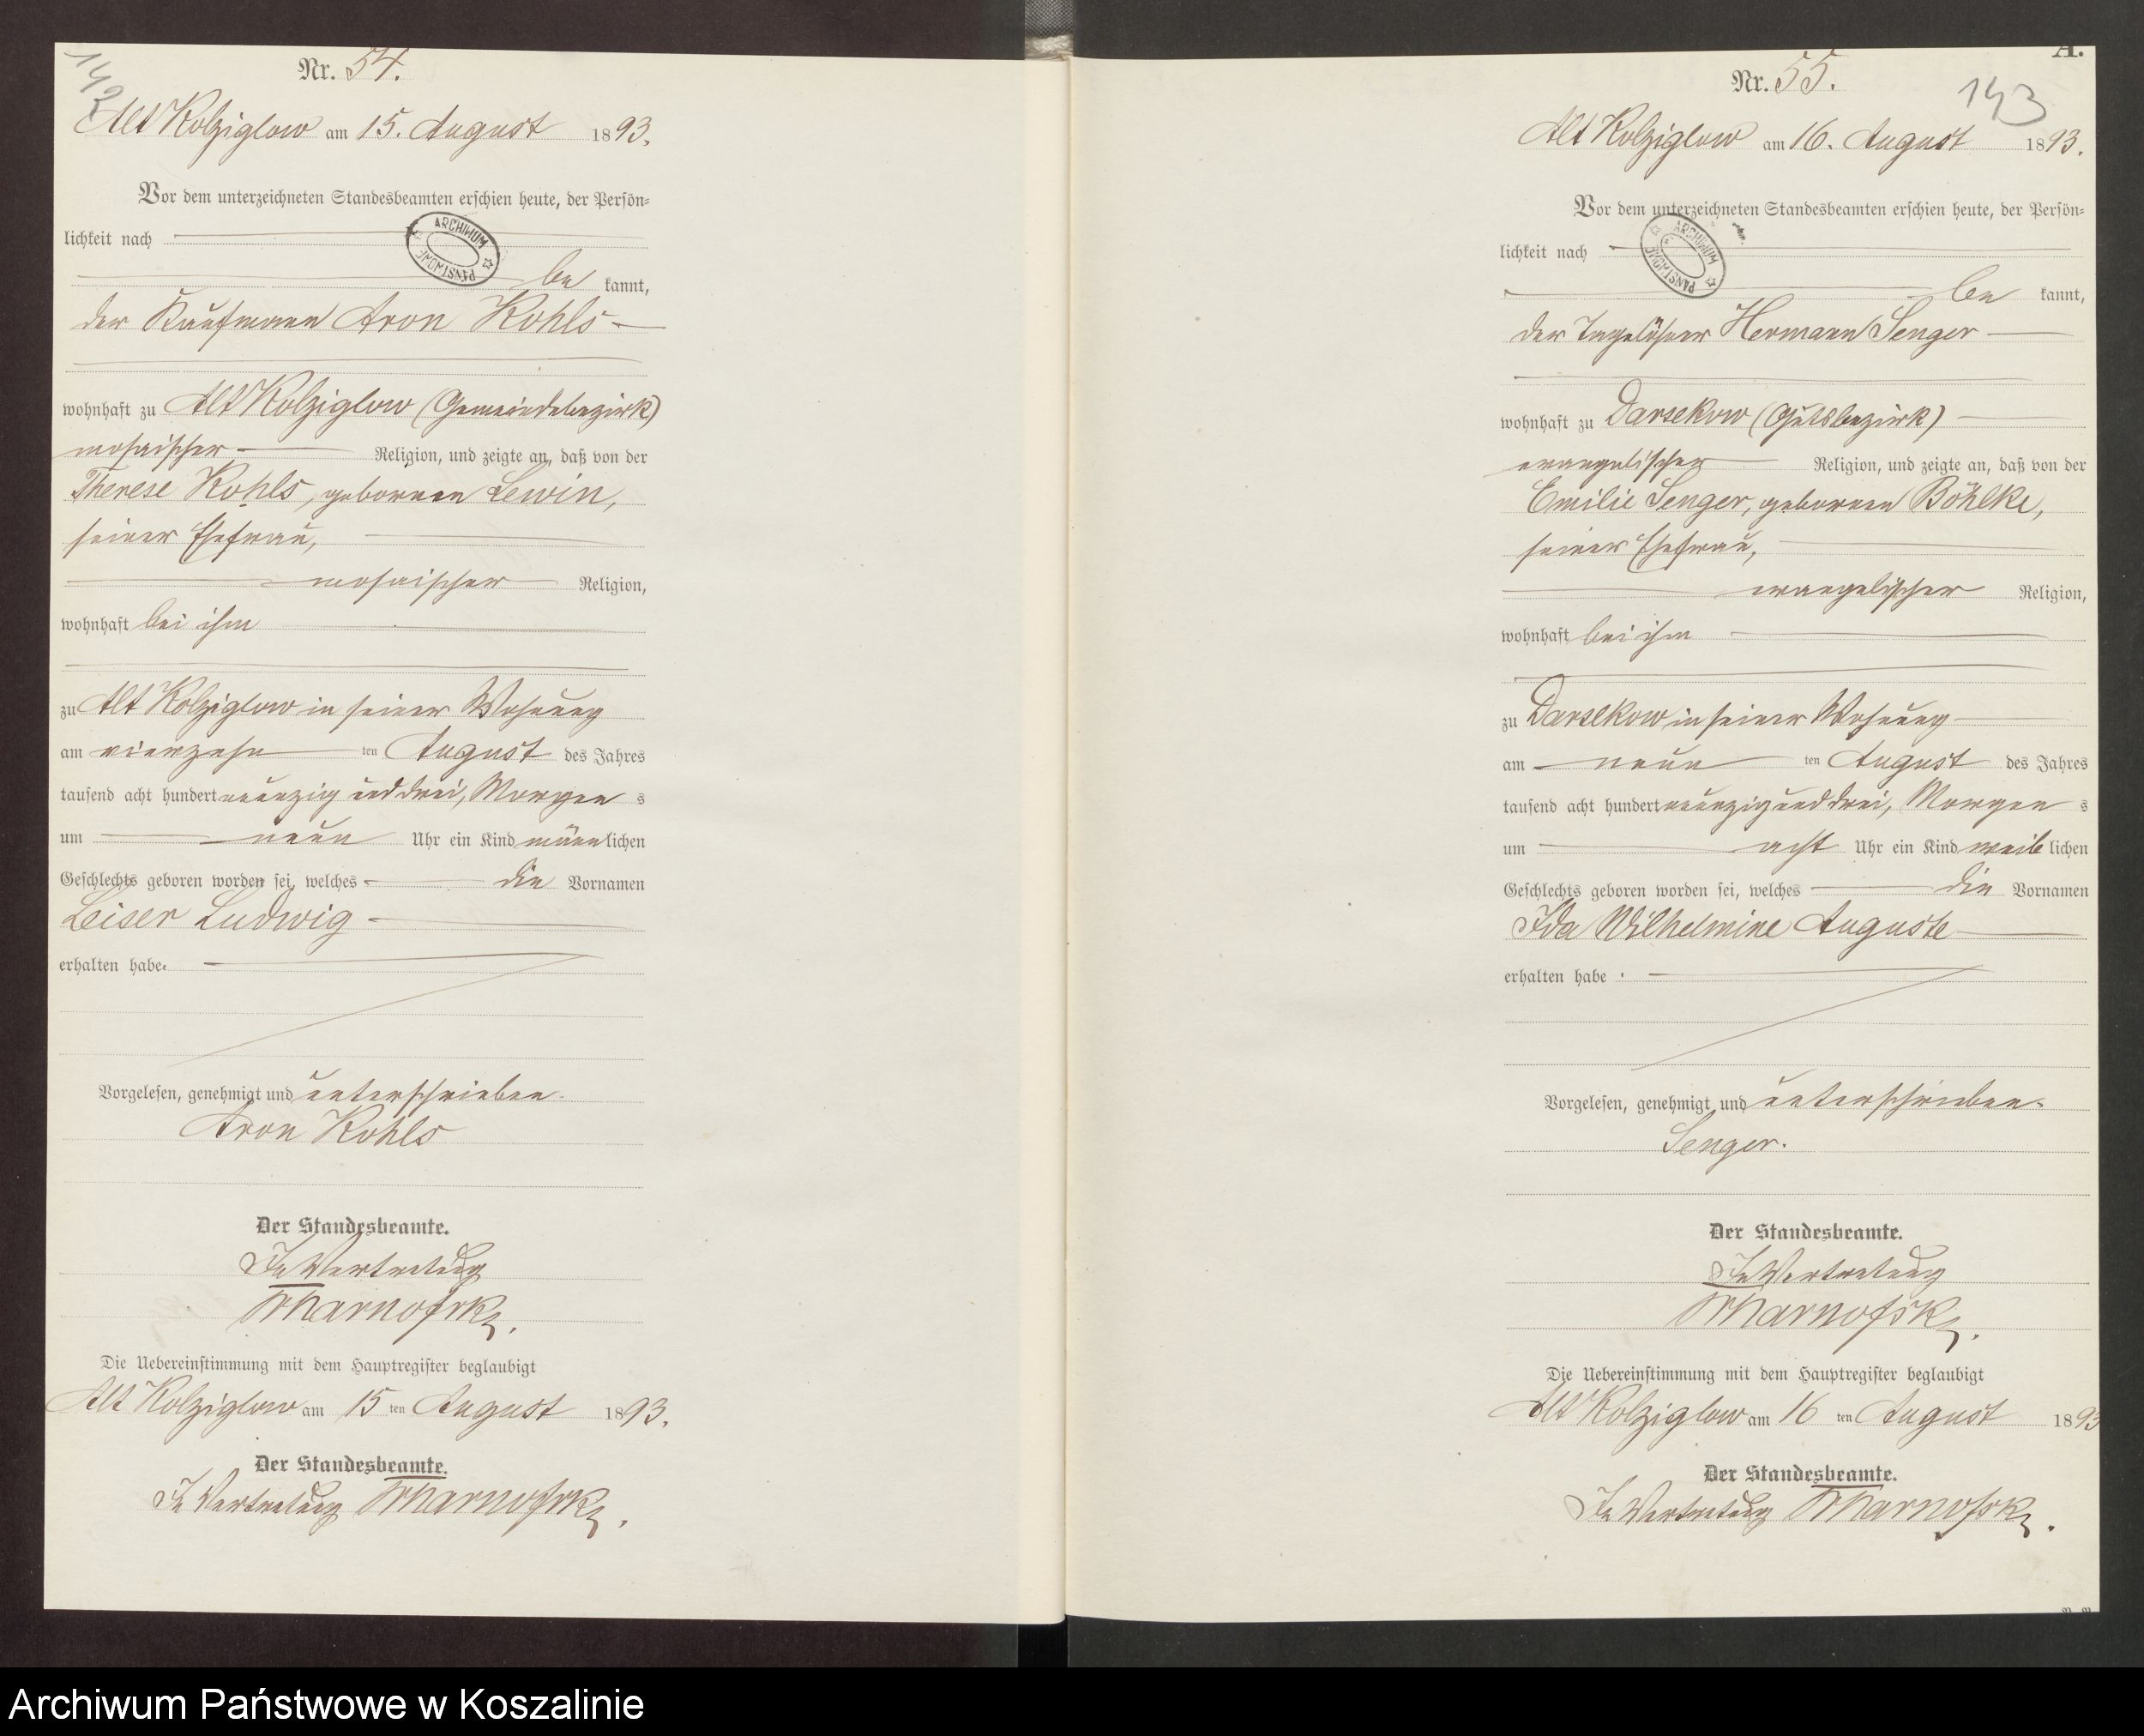 142
Nr. 54.
Alt Kolziglow am 15. August 1893.
Vor dem unterzeichneten Standesbeamten erschien heute, der Persön-
lichkeit nach
ARCHIWUM PAŃSTWOWE
be kannt,
der Kaufmann Aron Kohls
wohnhaft zu Alt Kolziglow (Gemeindebezirk)
mosaischer Religion, und zeigte an, daß von der
Therese Kohls, geborenen Lewin,
seiner Ehefrau,
mosaischer Religion,
wohnhaft bei ihm
zu Alt Kolziglow in seiner Wohnung
am vierzehn ten August des Jahres
tausend acht hundert neunzig und drei, Morgen s
um neun Uhr ein Kind männlichen
Geschlechts geboren worden sei, welches die Vornamen
Leiser Ludwig
erhalten habe.
Vorgelesen, genehmigt und unterschrieben.
Aron Kohls
Der Standesbeamte.
In Vertretung
Die Uebereinstimmung mit dem Hauptregister beglaubigt
Alt Kolziglow am 15 ten August 1893.
Der Standesbeamte.
In Vertretung
A.
Nr. 55.
143
Alt Kolziglow am 16. August 1893.
Vor dem unterzeichneten Standesbeamten erschien heute, der Persön-
lichkeit nach
ARCHIWUM PAŃSTWOWE
be kannt,
der Tagelöhner Hermann Senger
wohnhaft zu Darsekow (Gutsbezirk)
evangelischer Religion, und zeigte an, daß von der
Emilie Senger, geborenen Böhlke,
seiner Ehefrau,
evangelischer Religion,
wohnhaft bei ihm
zu Darsekow in seiner Wohnung
am neun ten August des Jahres
tausend acht hundert neunzig und drei, Morgen s
um acht Uhr ein Kind weib lichen
Geschlechts geboren worden sei, welches die Vornamen
Ida Wilhelmine Auguste
erhalten habe.
Vorgelesen, genehmigt und unterschrieben.
Senger.
Der Standesbeamte.
In Vertretung
Die Uebereinstimmung mit dem Hauptregister beglaubigt
Alt Kolziglow am 16 ten August 1893
Der Standesbeamte.
In Vertretung
Archiwum Państwowe w Koszalinie